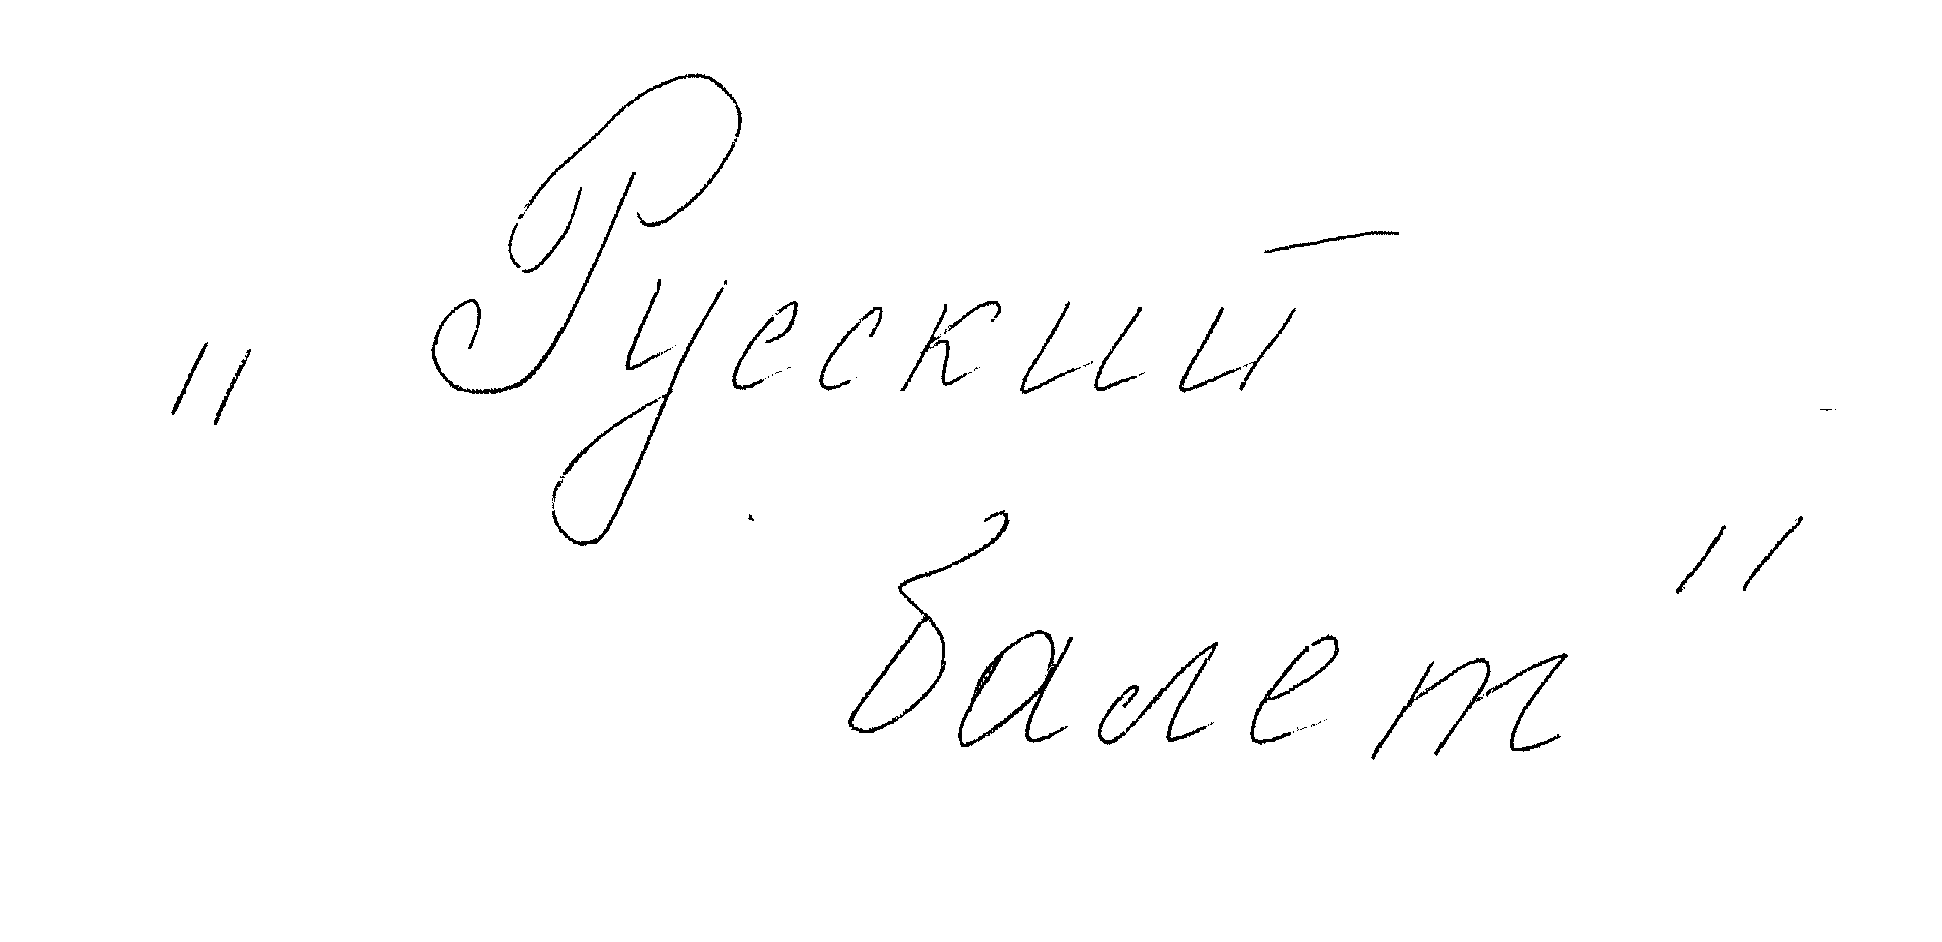 "Русский
балет"